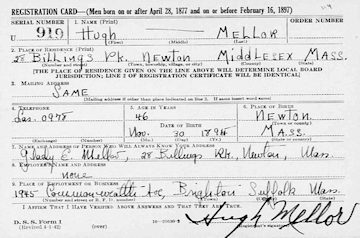 REGISTRATION CARD—(Men born on or after April 28, 1877 and on or before February 16, 1897)
SERIAL NUMBER 1. NAME (Print) ORDER NUMBER
U 919 Hugh MELLOR
(First) (Middle) (Last)
2. PLACE OF RESIDENCE (Print)
28 Billings Pk. Newton Middlesex Mass.
(Number and street) (Town, township, village, or city) (County) (State)
[THE PLACE OF RESIDENCE GIVEN ON THE LINE ABOVE WILL DETERMINE LOCAL BOARD
JURISDICTION; LINE 2 OF REGISTRATION CERTIFICATE WILL BE IDENTICAL]
3. MAILING ADDRESS
SAME
[Mailing address if other than place indicated on line 2. If same insert word same]
4. TELEPHONE 5. AGE IN YEARS 6. PLACE OF BIRTH
0978 46 Newton
DATE OF BIRTH (Town or county)
Nov. 30 Mass.
(Exchange) (Number) (Mo.) (Day) (Yr.) (State or country)
7. NAME AND ADDRESS OF PERSON WHO WILL ALWAYS KNOW YOUR ADDRESS
E. Mellor, 28 Billings Pk. Newton, Mass.
8. EMPLOYER'S NAME AND ADDRESS
none
9. PLACE OF EMPLOYMENT OR BUSINESS
1945 Commonwealth Ave, Brighton Suffolk Mass.
(Number and street or R. F. D. number) (Town) (County) (State)
I AFFIRM THAT I HAVE VERIFIED ABOVE ANSWERS AND THAT THEY ARE TRUE.
D. S. S. Form 1
(Revised 4-1-42) Hugh Mellor